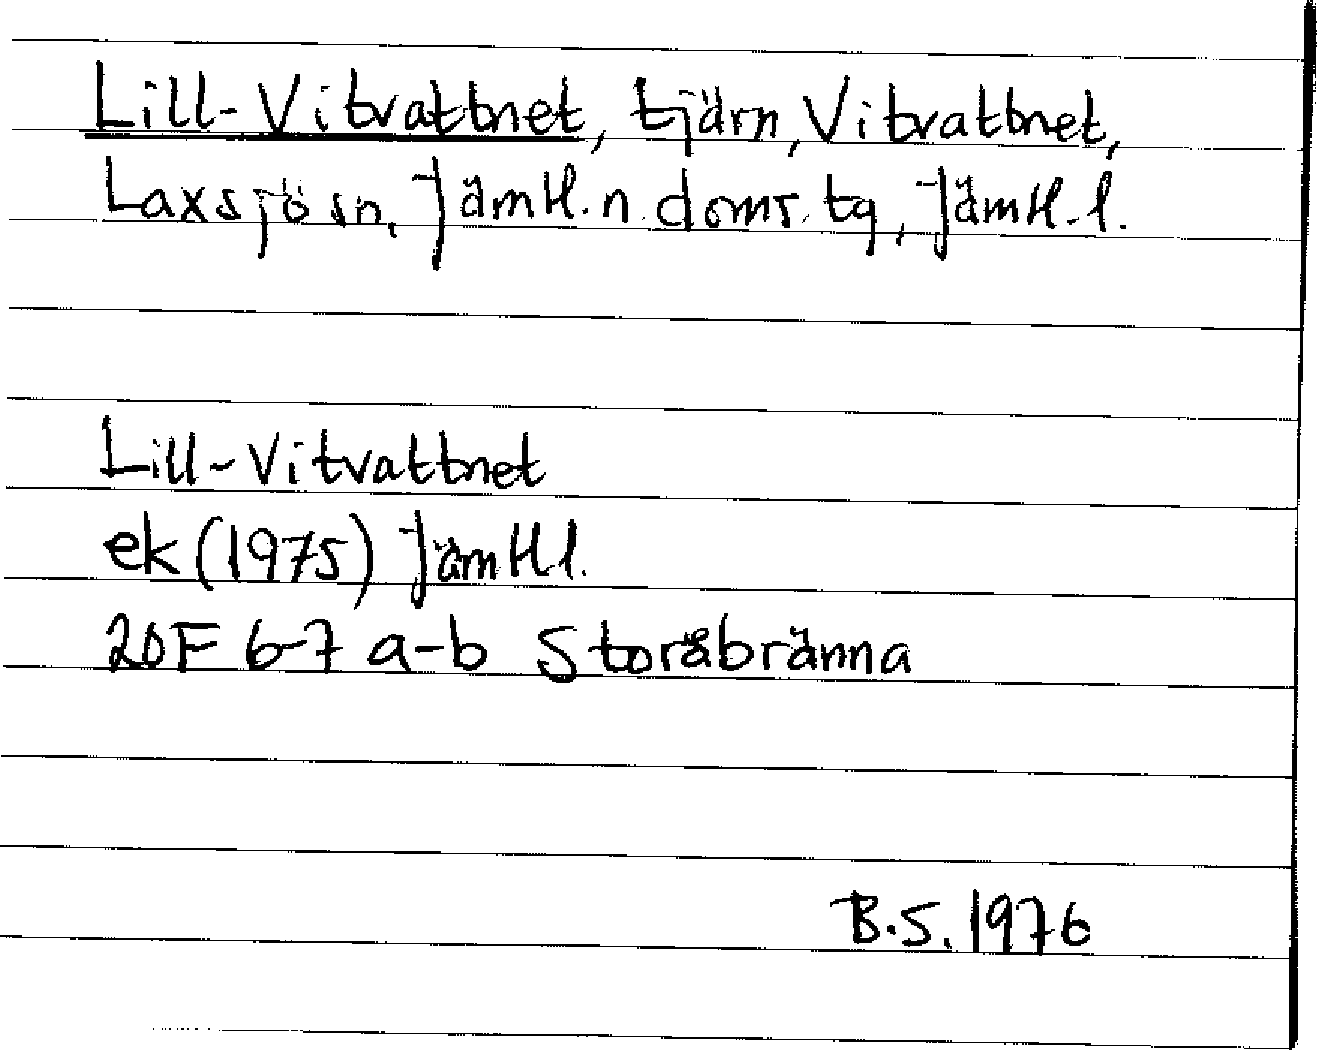 Lill-Vitvattnet, tjärn, Vitvattnet,
Laxsjö sn, Jämtl. n. doms. tg, Jämtl. l.
Lill-Vitvattnet
ek (1975) Jämtl l.
20F 6-7 a-b Storåbränna
B.S. 1976